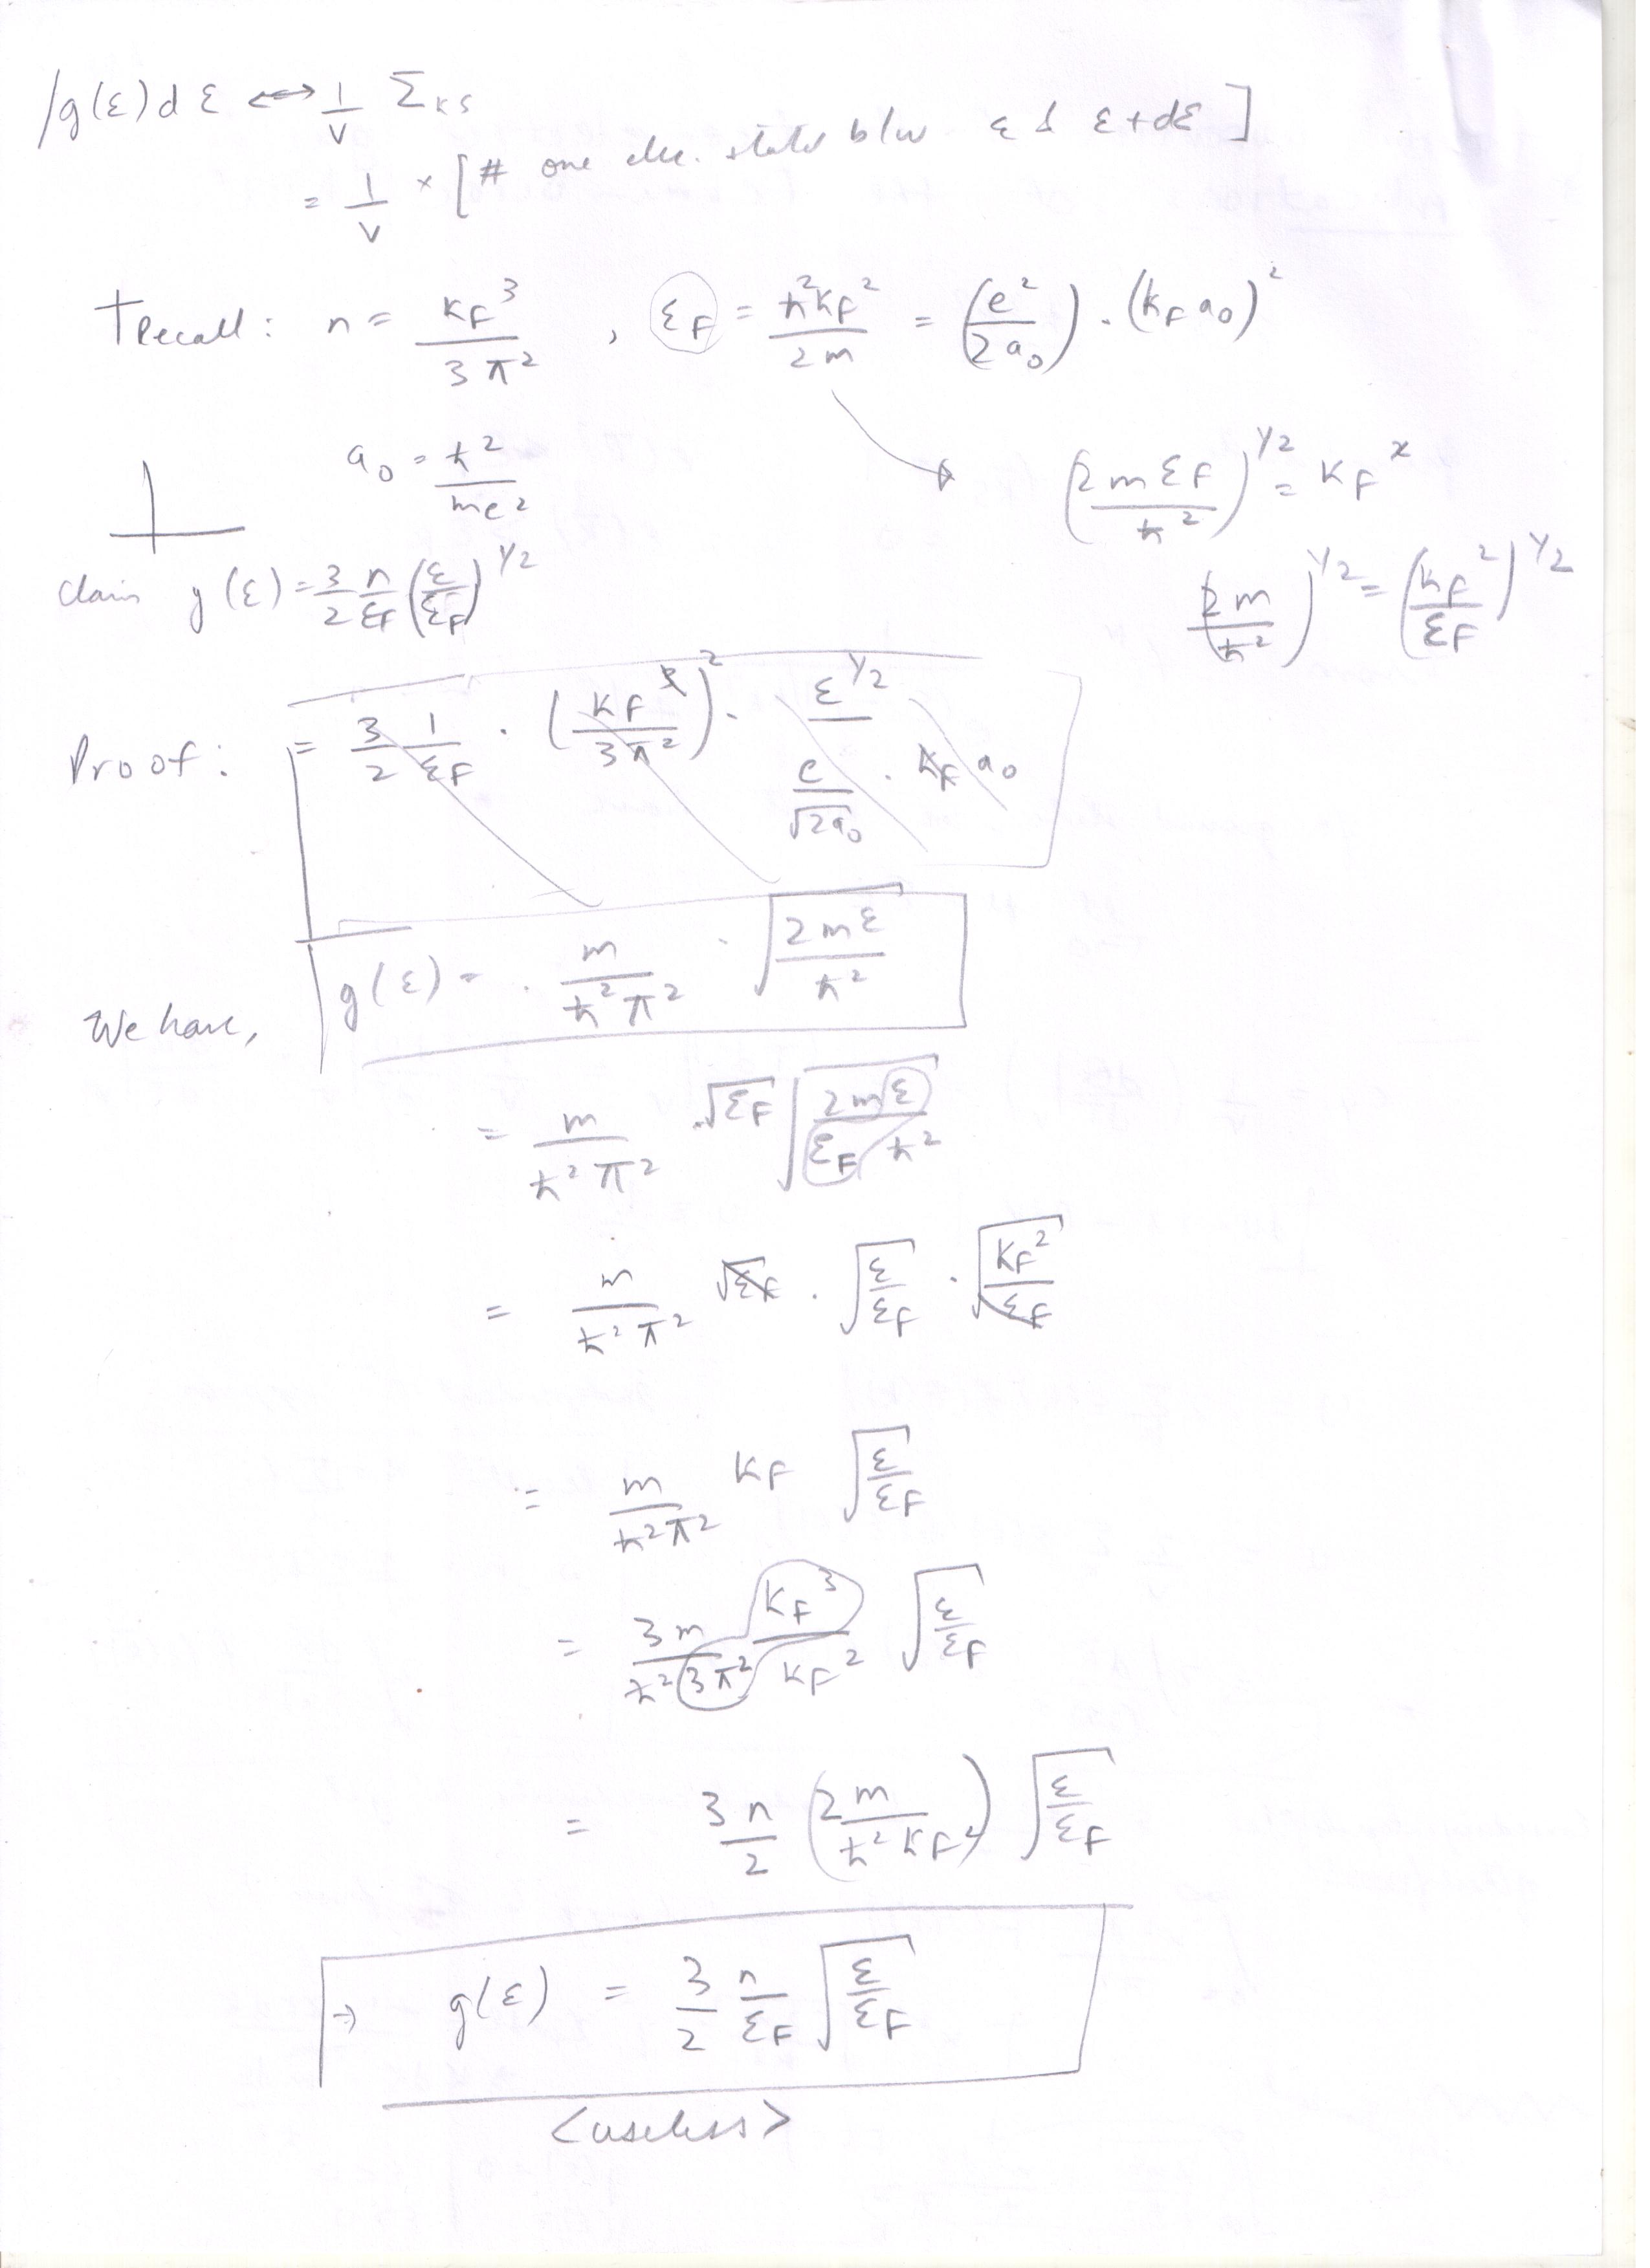 g(ε)dε ↔ 1/V Σks
= 1/V × [# one ele. states b/w ε & ε+dε]
Recall: n = kF³/3π² , εF = ħ²kF²/2m = (e²/2a₀) · (kF a₀)²
a₀ = ħ²/me²
(2mεF/ħ²)^1/2 = kF
(2m/ħ²)^1/2 = (kF²/εF)^1/2
Claim g(ε) = 3/2 n/εF (ε/εF)^1/2
Proof: = 3/2 1/εF · (kF/3π²)² · ε^1/2 / e/√2a₀ · kF a₀
We have, g(ε) = m/ħ²π² · √(2mε/ħ²)
= m/ħ²π² · √εF √(2mε/εF ħ²)
= m/ħ²π² √εF · √(ε/εF) · √(kF²/εF)
= m/ħ²π² kF √(ε/εF)
= 3m/ħ²3π² kF³/kF² √(ε/εF)
= 3n/2 (2m/ħ²kF²) √(ε/εF)
→ g(ε) = 3/2 n/εF √(ε/εF)
<useless>